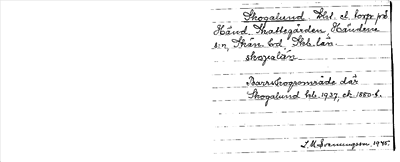 Skogalund Lht. el. torp på
Händ. Skattegården Händene
s:n, Skån. hd Skbr. län
skoɡalún
Barrskogsområde där
Skogalund beb. 1927, ek. 1880-t.
S. M. Svenungsson, 1945.